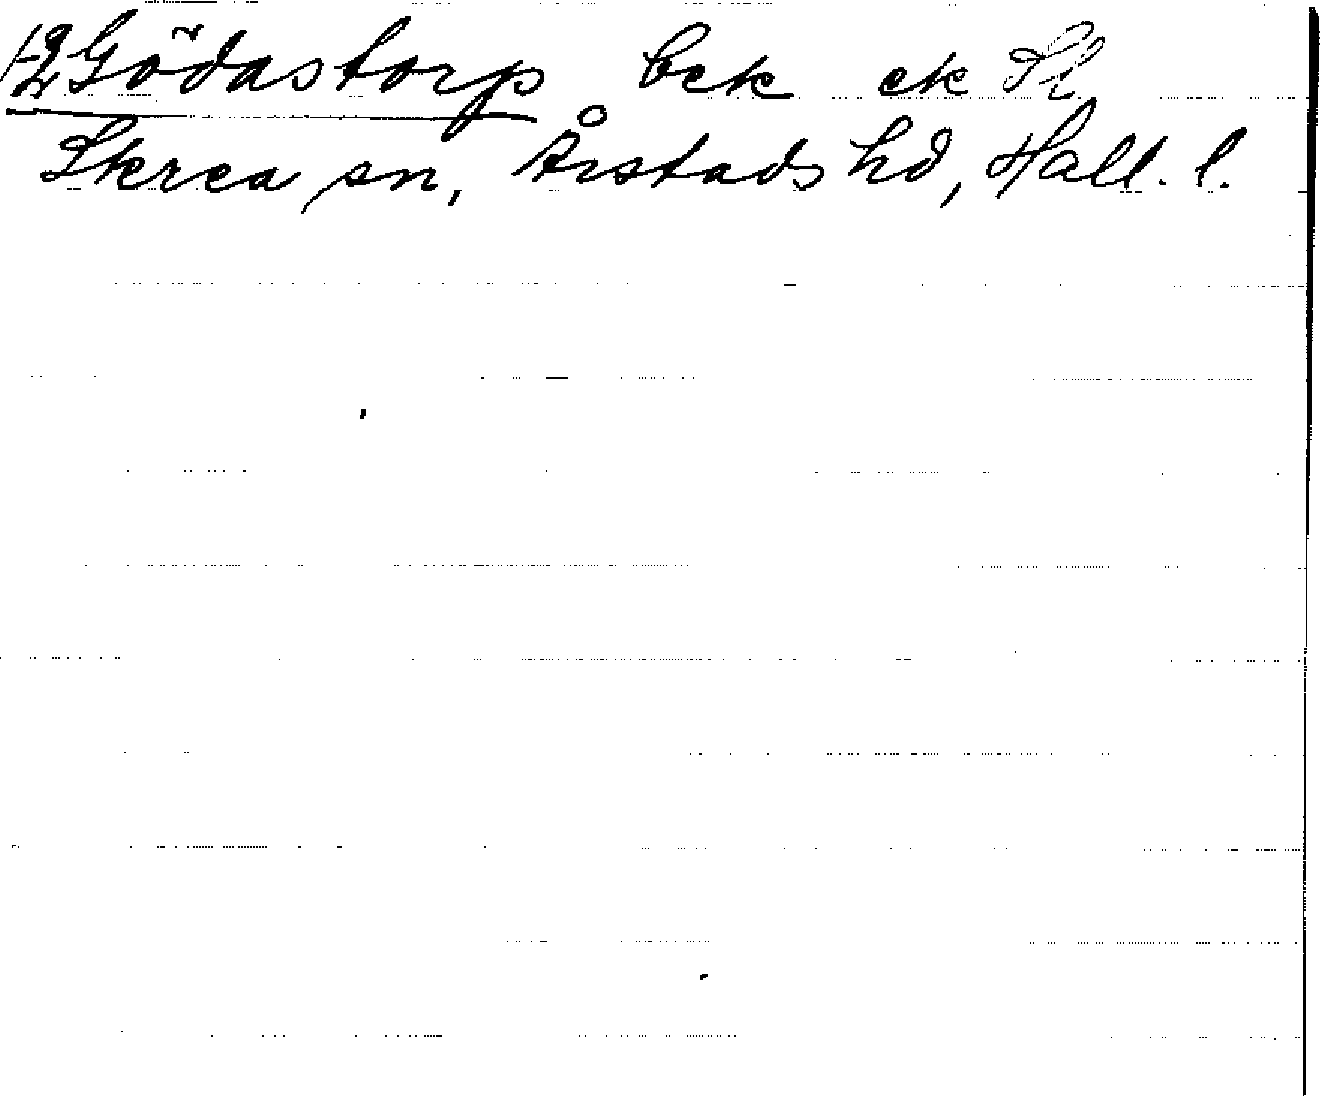 1-2 Gödastorp bek ek
Skrea sn, Årstads hd, Hall. l.